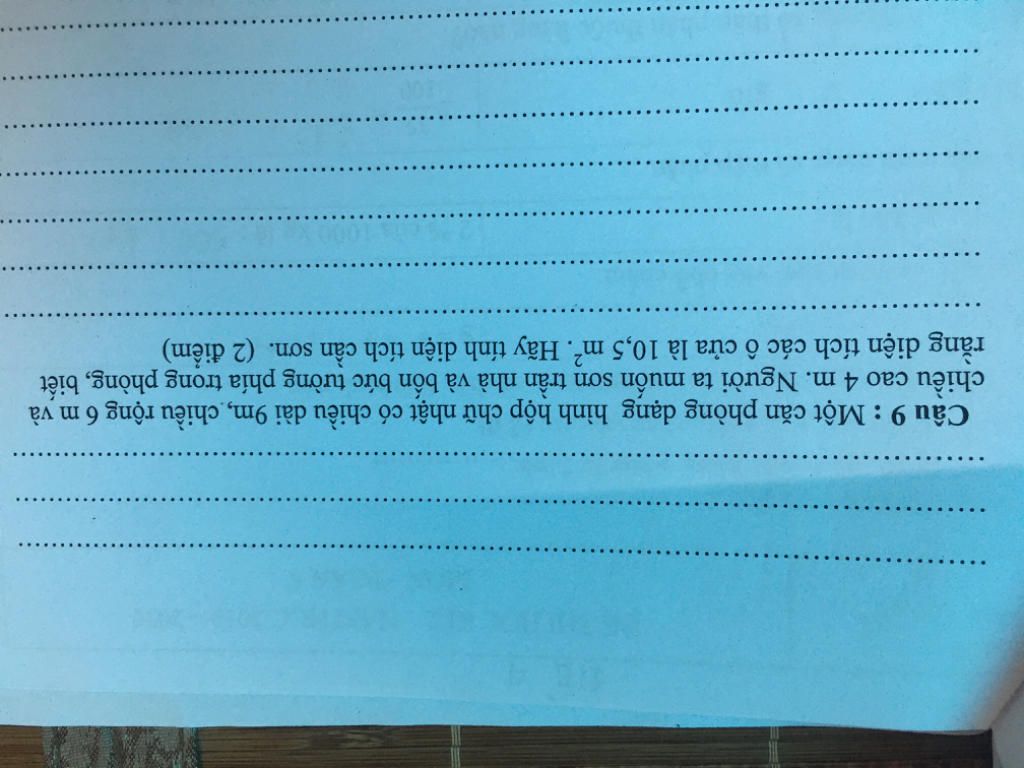 Câu 9 : Một căn phòng dạng hình hộp chữ nhật có chiều dài 9m, chiều rộng 6 m và
chiều cao 4 m. Người ta muốn sơn trần nhà và bốn bức tường phía trong phòng, biết
rằng diện tích các ô cửa là 10,5 m². Hãy tính diện tích cần sơn. (2 điểm)